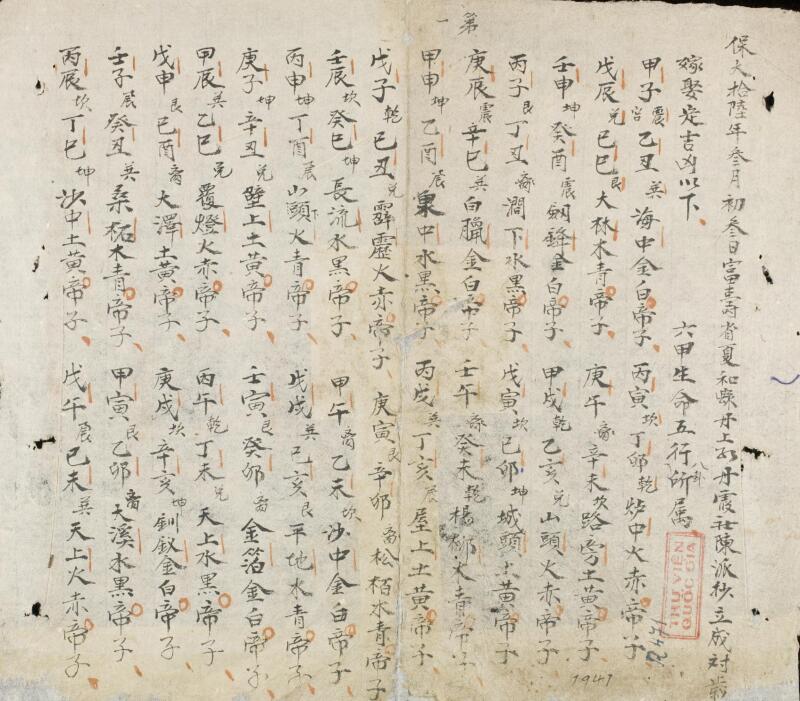 保大拾陸年叁月初叁日富壽省夏和縣丹上丹霞社陳派抄立成对歲
嫁娶定吉凶以下 六甲生命五行八卦所属
甲子震宮乙丑巽海中金白帝子 丙寅坎丁卯乾炉中火赤帝子
戊辰兑己巳艮大林木青帝子 庚午離辛未坎路旁土黄帝子
壬申坤癸酉震劔鋒金白帝子 甲戌乾乙亥兑山頭火赤帝子
丙子艮丁丑離澗下水黑帝子 戊寅坎己卯坤城頭土黄帝子
庚辰震辛巳巽白臘金白帝子 壬午離癸未乾楊柳木青帝子
第一
甲申坤乙酉震泉中水黑帝子 丙戌巽丁亥震屋上土黄帝子
戊子乾己丑兑霹靂火赤帝子 庚寅艮辛卯离松栢木青帝子
壬辰坎癸巳坤長流水黑帝子 甲午离乙未坎沙中金白帝子
丙申坤丁酉震山頭下火青帝子 戊戌巽己亥艮平地水青帝子
庚子坤辛丑兑壁上土黄帝子 壬寅艮癸卯离金箔金白帝子
甲辰巽乙巳兑覆燈火赤帝子 丙午乾丁未兑天上水黑帝子
戊申艮己酉离大澤土黄帝子 庚戌坎辛亥坤釧釵金白帝子
壬子震癸丑巽桑柘木青帝子 甲寅艮乙卯离大溪水黑帝子
丙辰坎丁巳坤沙中土黄帝子 戊午震己未巽天上火赤帝子
THƯ VIỆN
QUỐC GIA
1941